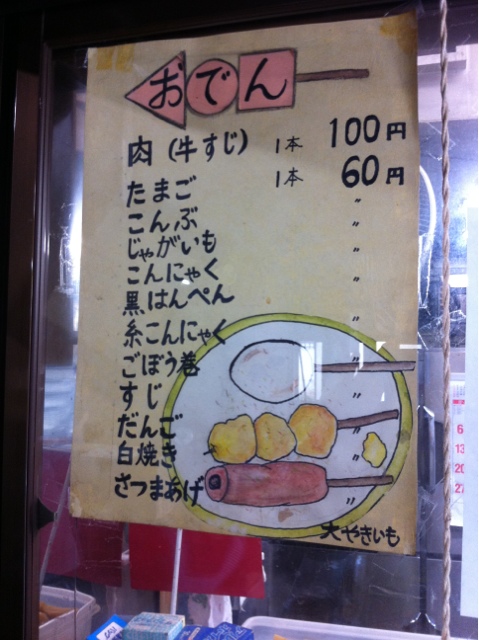 おでん
肉 (牛すじ) 1本 100円
たまご 1本 60円
こんぶ 〃
じゃがいも 〃
こんにゃく 〃
黒はんぺん 〃
糸こんにゃく 〃
ごぼう巻 〃
すじ 〃
だんご 〃
白焼き 〃
さつまあげ 〃
大やきいも
6
13
20
27